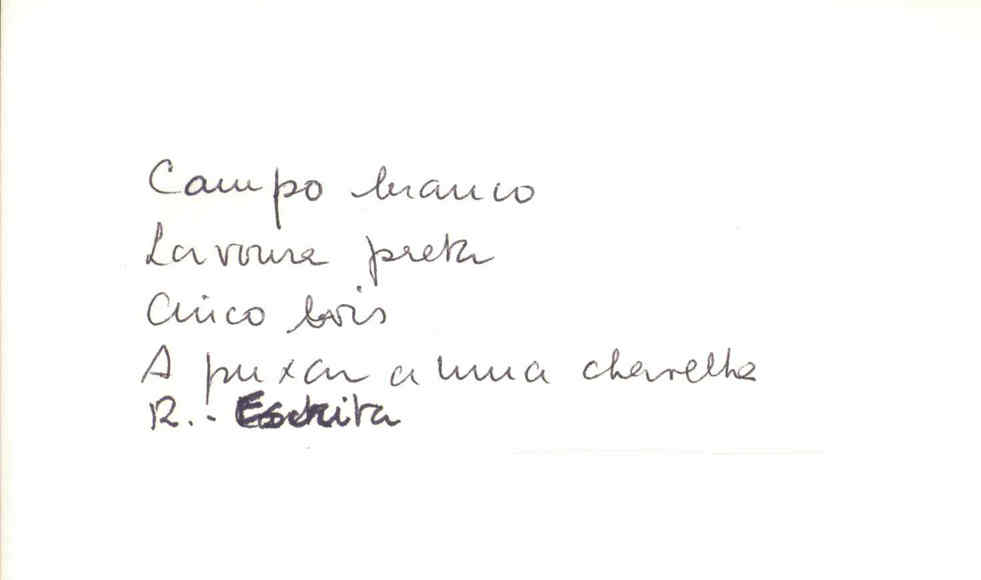 Campo branco
Lavoura preta
Cinco bois
A puxar a uma chavelha
R.- Escrita